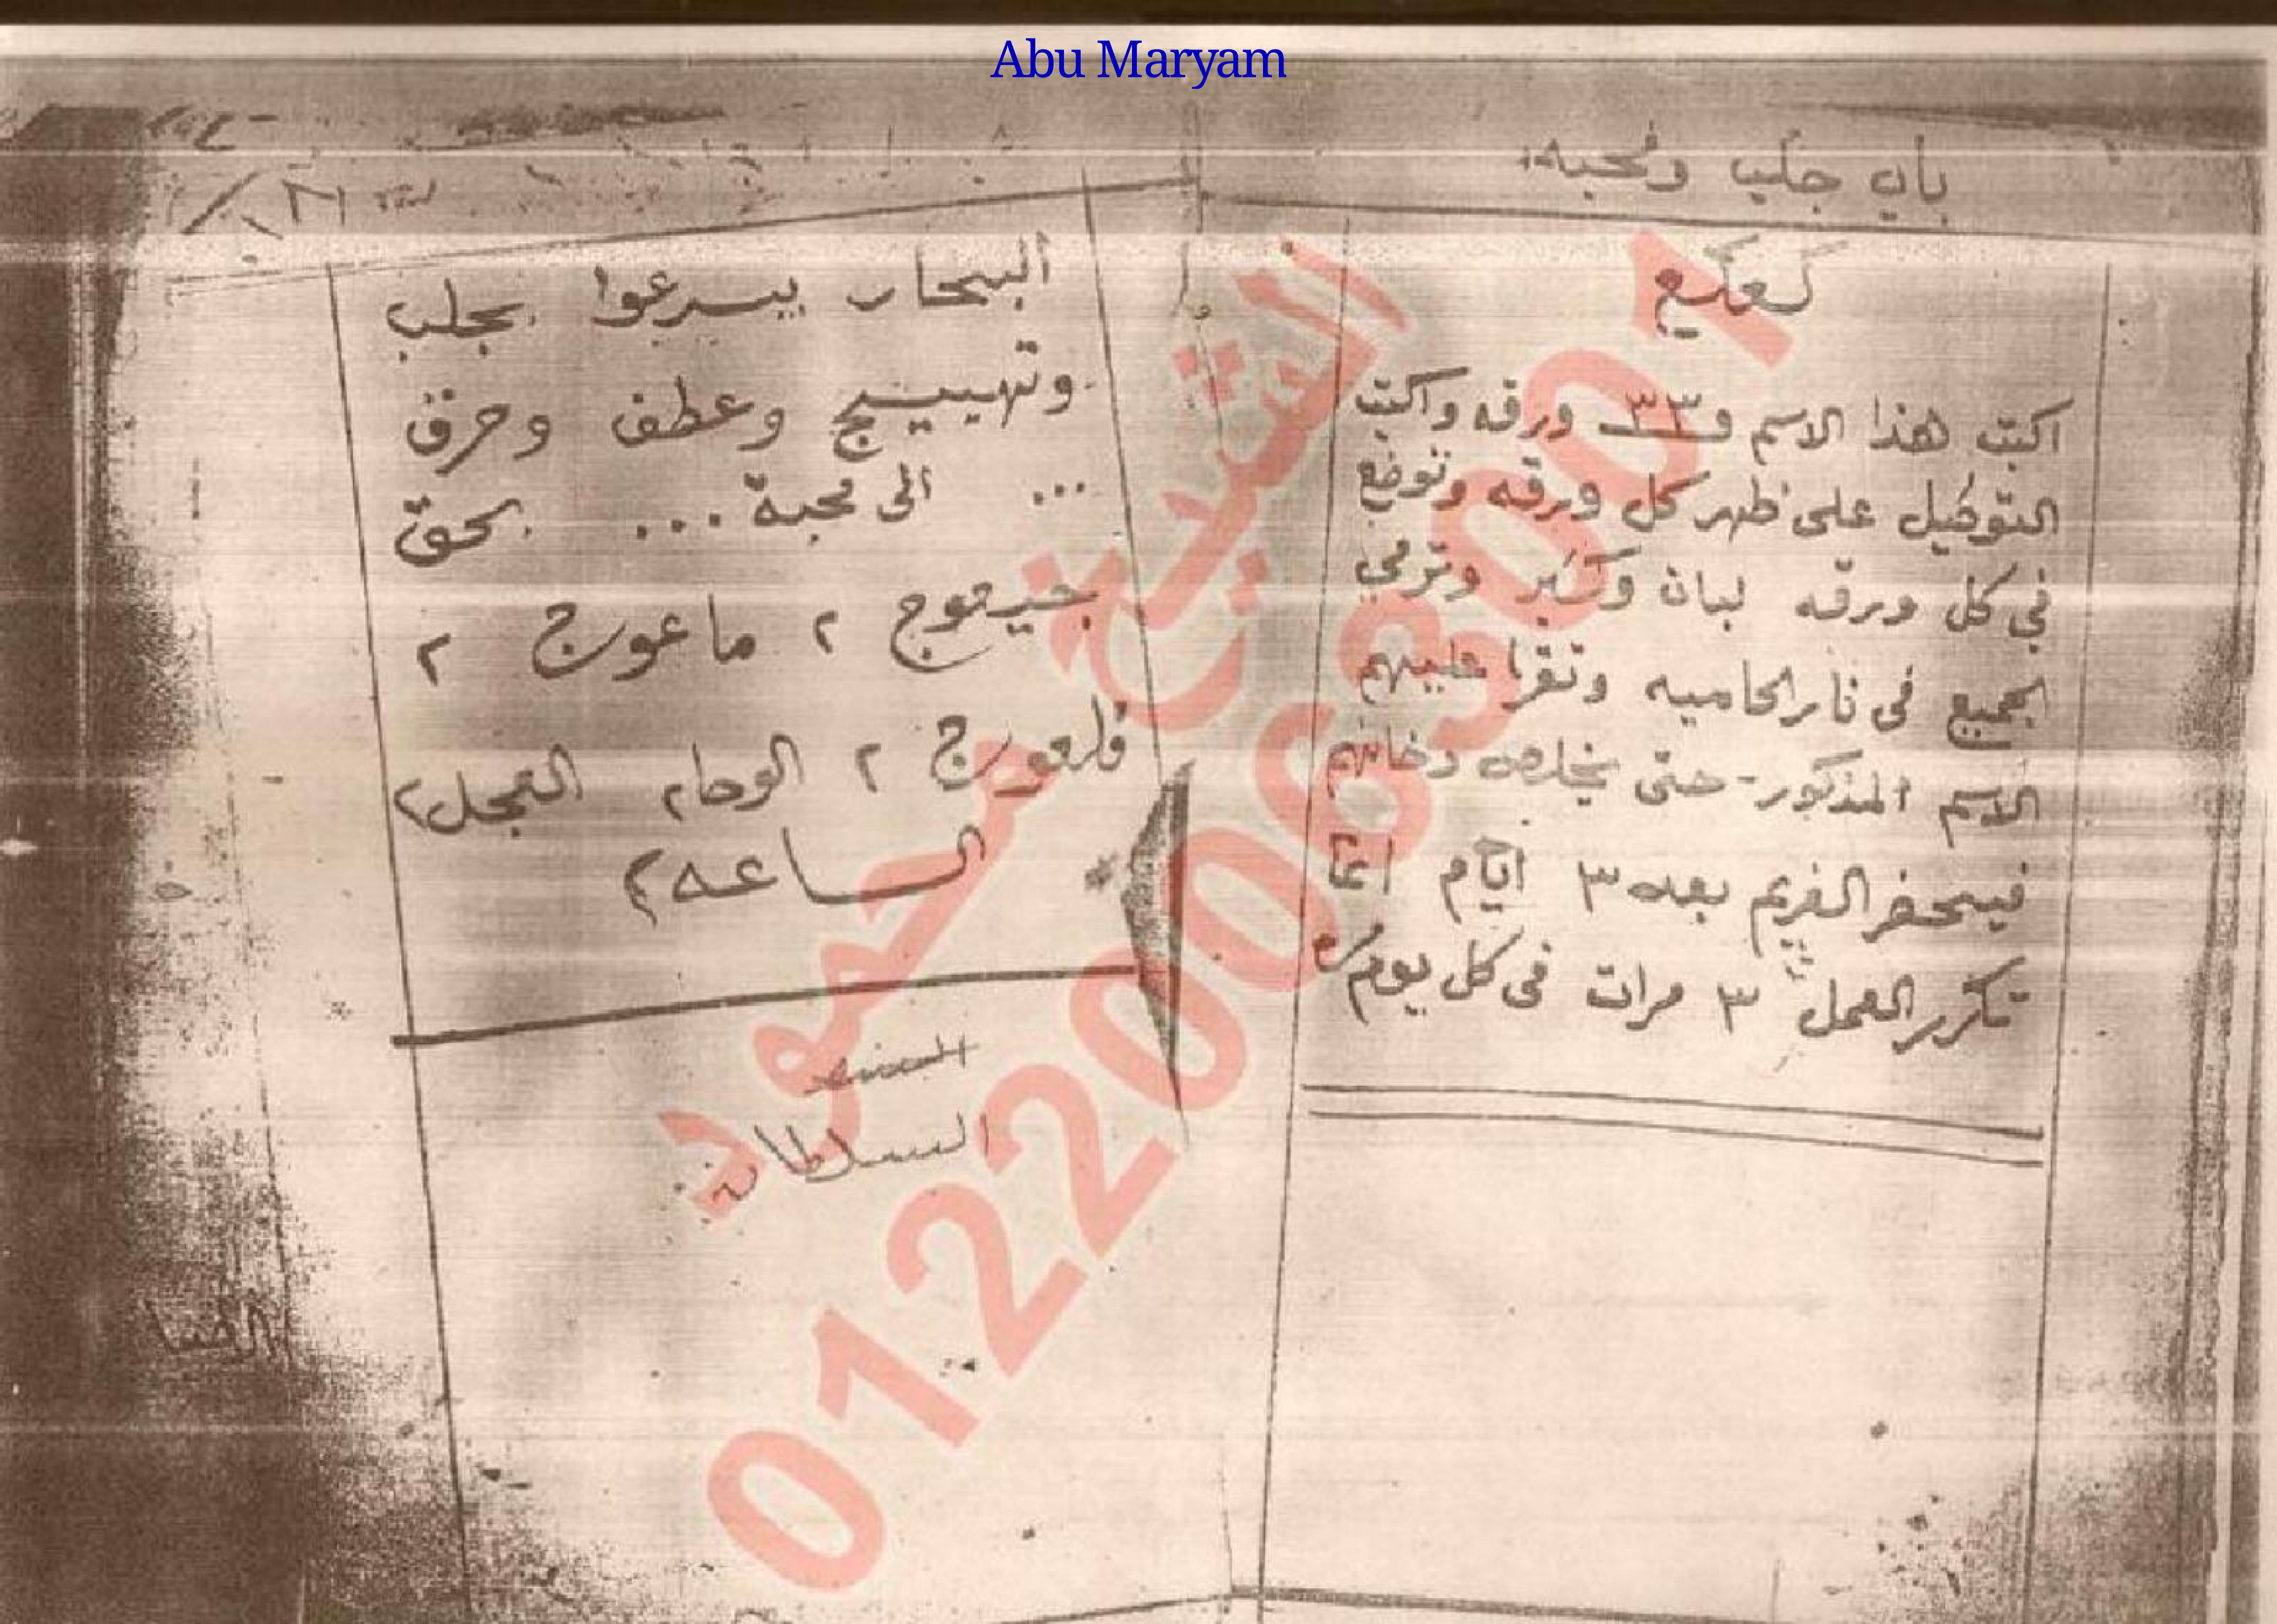 Abu Maryam
باب جلب ومحبه
كعكع
اكتب هذا الاسم ف ٣٣ ورقه واكتب
التوكيل على ظهر كل ورقه وتوضع
في كل ورقه لبان وكسبر وترمي
الجميع فى نار الحاميه وتقرا عليهم
الاسم المذكور - حتى يخلص دخانهم
فيحضر الغريم بعد ٣ ايام
تكرر العمل ٣ مرات فى كل يوم
البحار يسرعوا بجلب
وتهييج وعطف وحرق
... الى محبة ... بحق
٢ ماعوج ٢
٢ الوحا٢ العجل٢
الساعه٢
السلطان
الشيخ محمود
01220063001